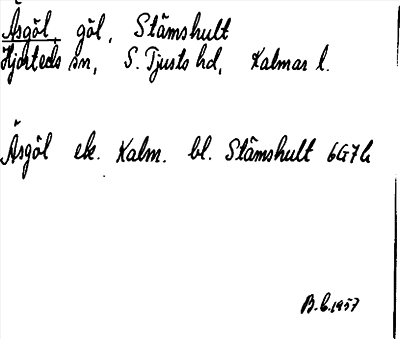 Åsgöl, göl, Stämshult
Hjorteds sn, S. Tjusts hd, Kalmar l.
Åsgöl ek. Kalm. bl. Stämshult 6G7b
B.C. 1957